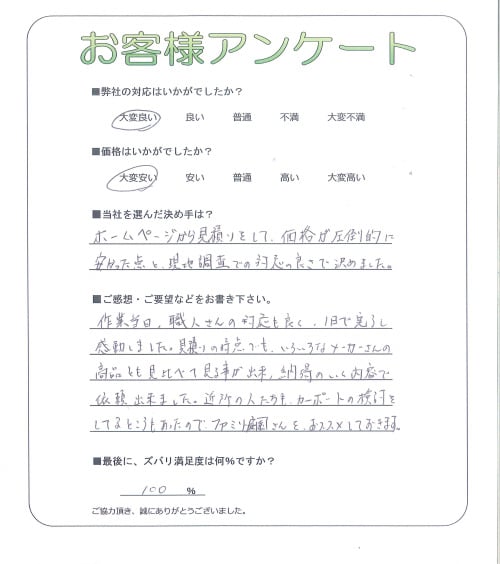 お客様アンケート
■弊社の対応はいかがでしたか？
大変良い 良い 普通 不満 大変不満
■価格はいかがでしたか？
大変安い 安い 普通 高い 大変高い
■当社を選んだ決め手は？
ホームページから見積りをして、価格が圧倒的に
安かった点と、現地調査での対応の良さで決めました。
■ご感想・ご要望などをお書き下さい。
作業当日、職人さんの対応も良く、1日で完了し
感動しました。見積りの時点でも、いろいろなメーカーさんの
商品とも見比べて見る事が出来、納得のいく内容で
依頼出来ました。近所の人たちも、カーポートの検討を
してるところもあったので、ファミリー庭園さんを、おススメしておきます。
■最後に、ズバリ満足度は何％ですか？
100 ％
ご協力頂き、誠にありがとうございました。